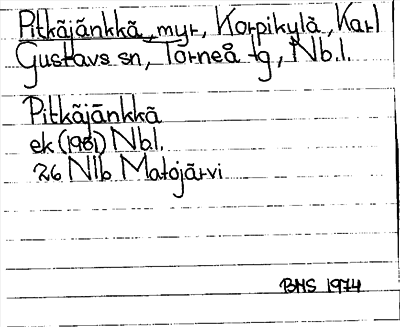 Pitkäjänkkä, myr, Korpikylä, Karl
Gustavs sn, Torneå tg, Nb.l.
Pitkäjänkkä
ek (1961) Nbl.
26 Nlb Matojärvi
BHS 1974